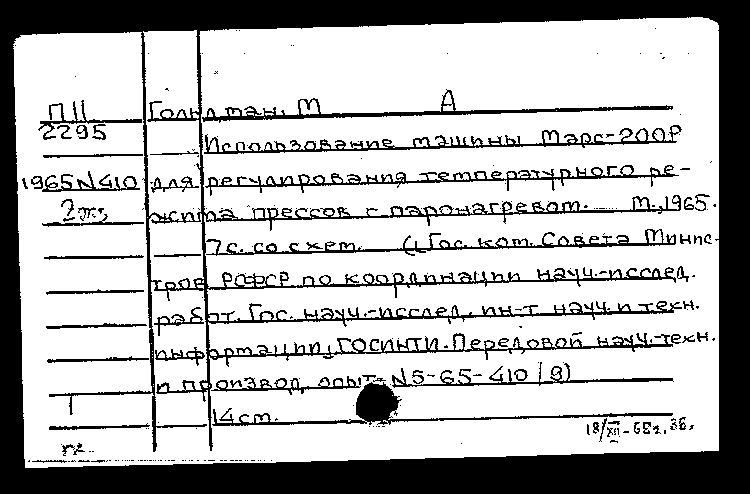 П11 Гольдман, М А
2295 Использование машины Марс-200Р
1965 N410 для регулирования температурного ре-
2 экз жима прессов с паронагревом. М., 1965.
7 с. со схем. (Гос. ком. Совета Минис-
тров РСФСР по координации науч.-исслед.
работ. Гос. науч.-исслед. ин-т науч. и техн.
информации, ГОСИНТИ. Передовой науч.-техн.
и производ. опыт. N5-65-410/9)
1 14 см.
18/XII-65г.